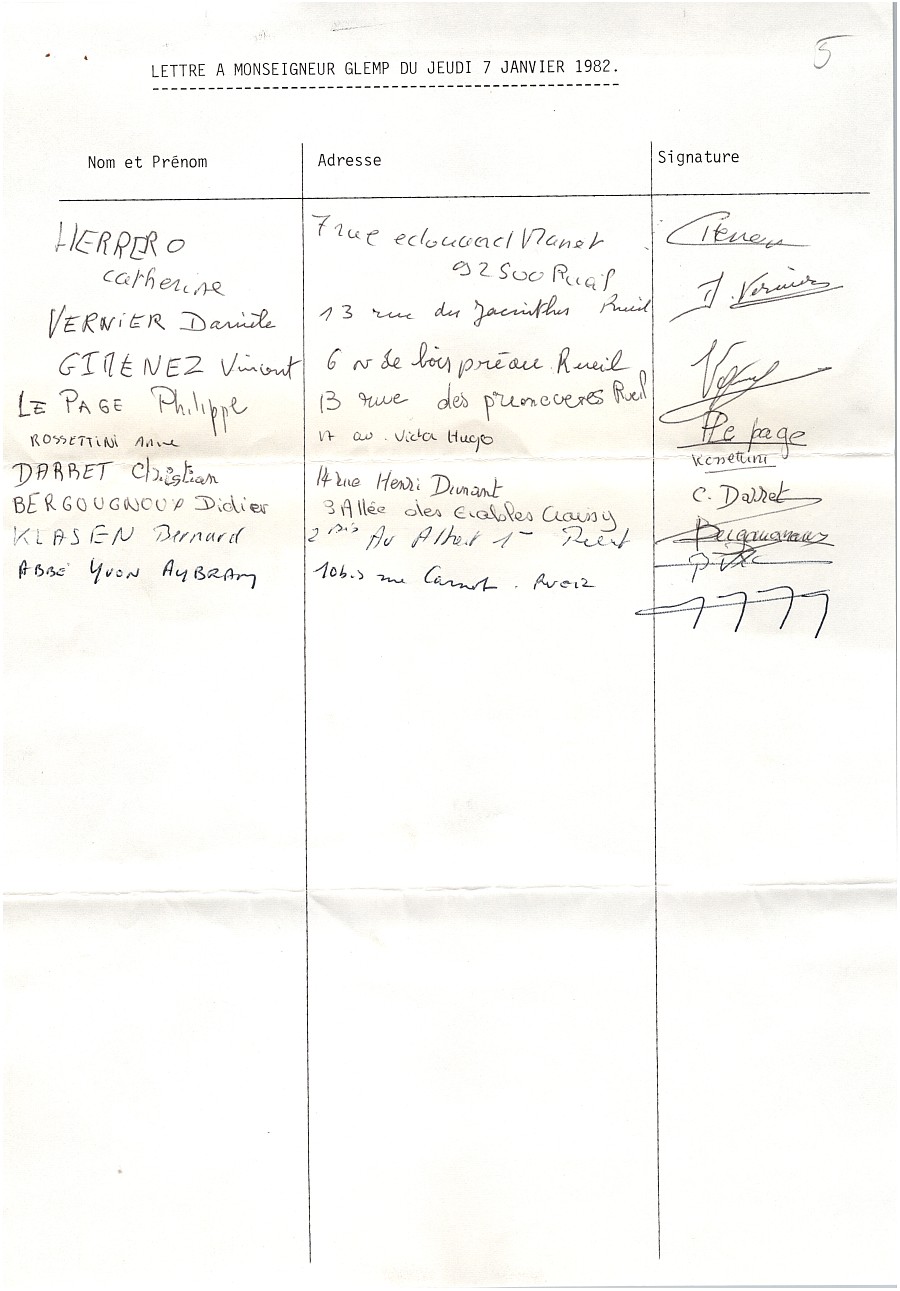 5
LETTRE A MONSEIGNEUR GLEMP DU JEUDI 7 JANVIER 1982.
Nom et Prénom Adresse Signature
HERRERO 7 rue edouard Manet
catherine 92500 Rueil
VERNIER Danièle 13 rue des Jacinthes Rueil D. Vernier
GIMENEZ Vincent 6 de bois préau Rueil
LE PAGE Philippe 13 rue des primeveres Rueil P Le page
ROSSETTINI Anne 17 av. Victor Hugo Rossettini
DARRET Christian 14 rue Henri Dunant C. Darret
BERGOUGNOUX Didier 3 Allée des Erables Croissy Bergougnoux
KLASEN Bernard 2 bis Av Albert 1er Rueil
ABBÉ YVON AYBRAM 10bis rue Carnot. Rueil